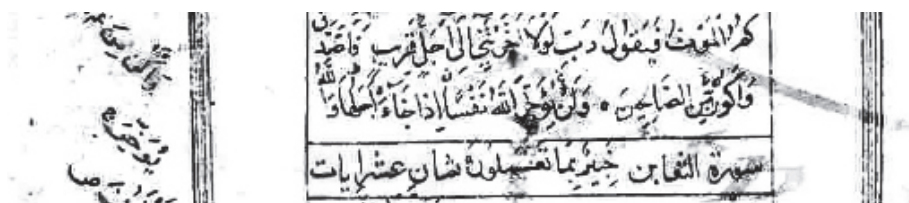 كم الموت فيقول رب لولا اخرتني الى اجل قريب فاصدق
واكون من الصالحين ه ولن يؤخر الله نفسا اذا جاء اجلها والله
سورة التغابن خبير بما تعملون ثمان عشر ايات